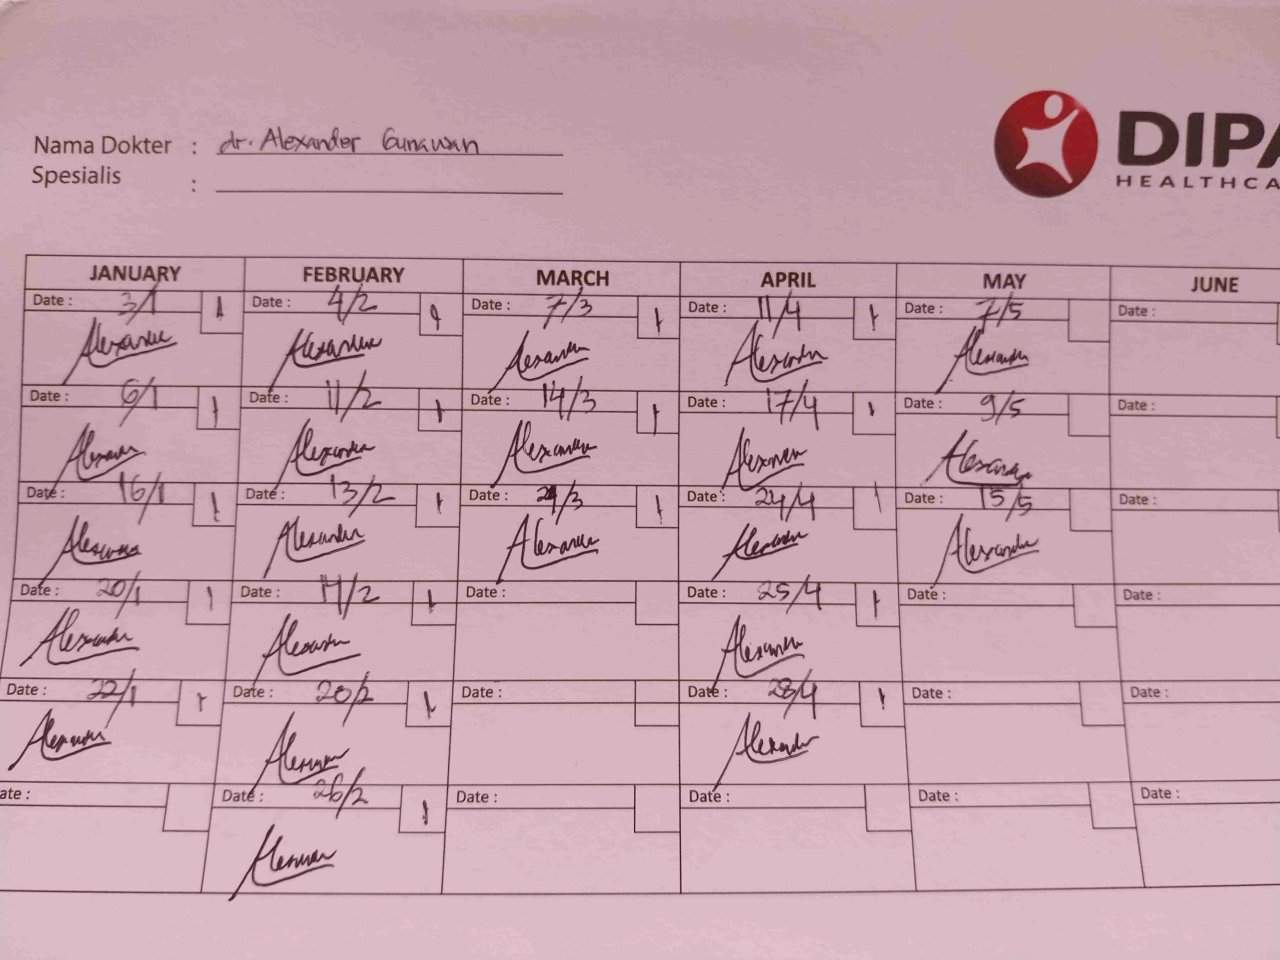 Nama Dokter : dr. Alexander Gunawan
Spesialis :
DIPA
HEALTHCA
JANUARY FEBRUARY MARCH APRIL MAY JUNE
Date : 3/1 Date : 4/2 Date : 7/3 Date : 11/4 Date : 7/5 Date :
Alexander Alexander Alexander Alexander Alexander
Date : 6/1 Date : 11/2 Date : 14/3 Date : 17/4 Date : 9/5 Date :
Alexander Alexander Alexander Alexander Alexander
Date : 16/1 Date : 13/2 Date : /3 Date : 24/4 Date : 15/5 Date :
Alexander Alexander Alexander Alexander Alexander
Date : 20/1 Date : /2 Date : Date : 25/4 Date : Date :
Alexander Alexander Alexander
Date : 22/1 Date : 20/2 Date : Date : 28/4 Date : Date :
Alexander Alexander Alexander
ate : Date : 26/2 Date : Date : Date : Date :
Alexander